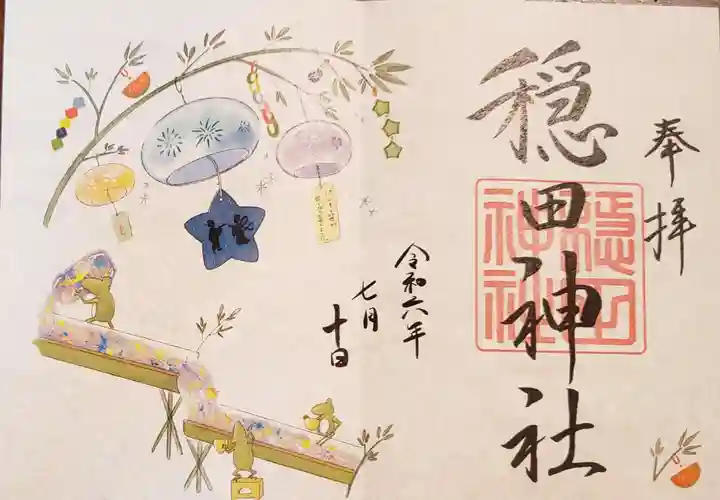 奉拝
穏田神社
穏田
神社
令和六年
七月
十日